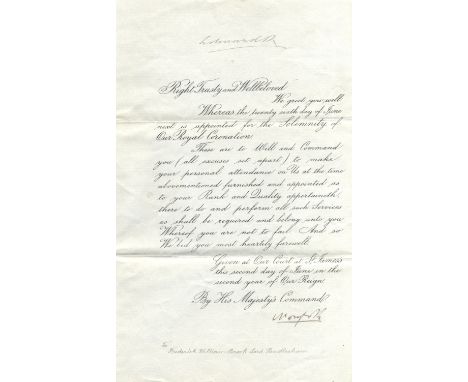 Edward R
Right Trusty and Wellbeloved
We greet you well
Whereas the twenty sixth day of June
next is appointed for the Solemnity of
Our Royal Coronation
These are to Will and Command
you (all excuses set apart) to make
your personal attendance on Us at the time
abovementioned furnished and appointed as
to your Rank and Quality appertaineth,
there to do and perform all such Services
as shall be required and belong unto you
Whereof you are not to fail. And so
We bid you most heartily farewell.
Given at Our Court at St. James's
this second day of June in the
second year of Our Reign.
By His Majesty's Command
Norfolk
To
Frederick William Brook Lord Rendlesham